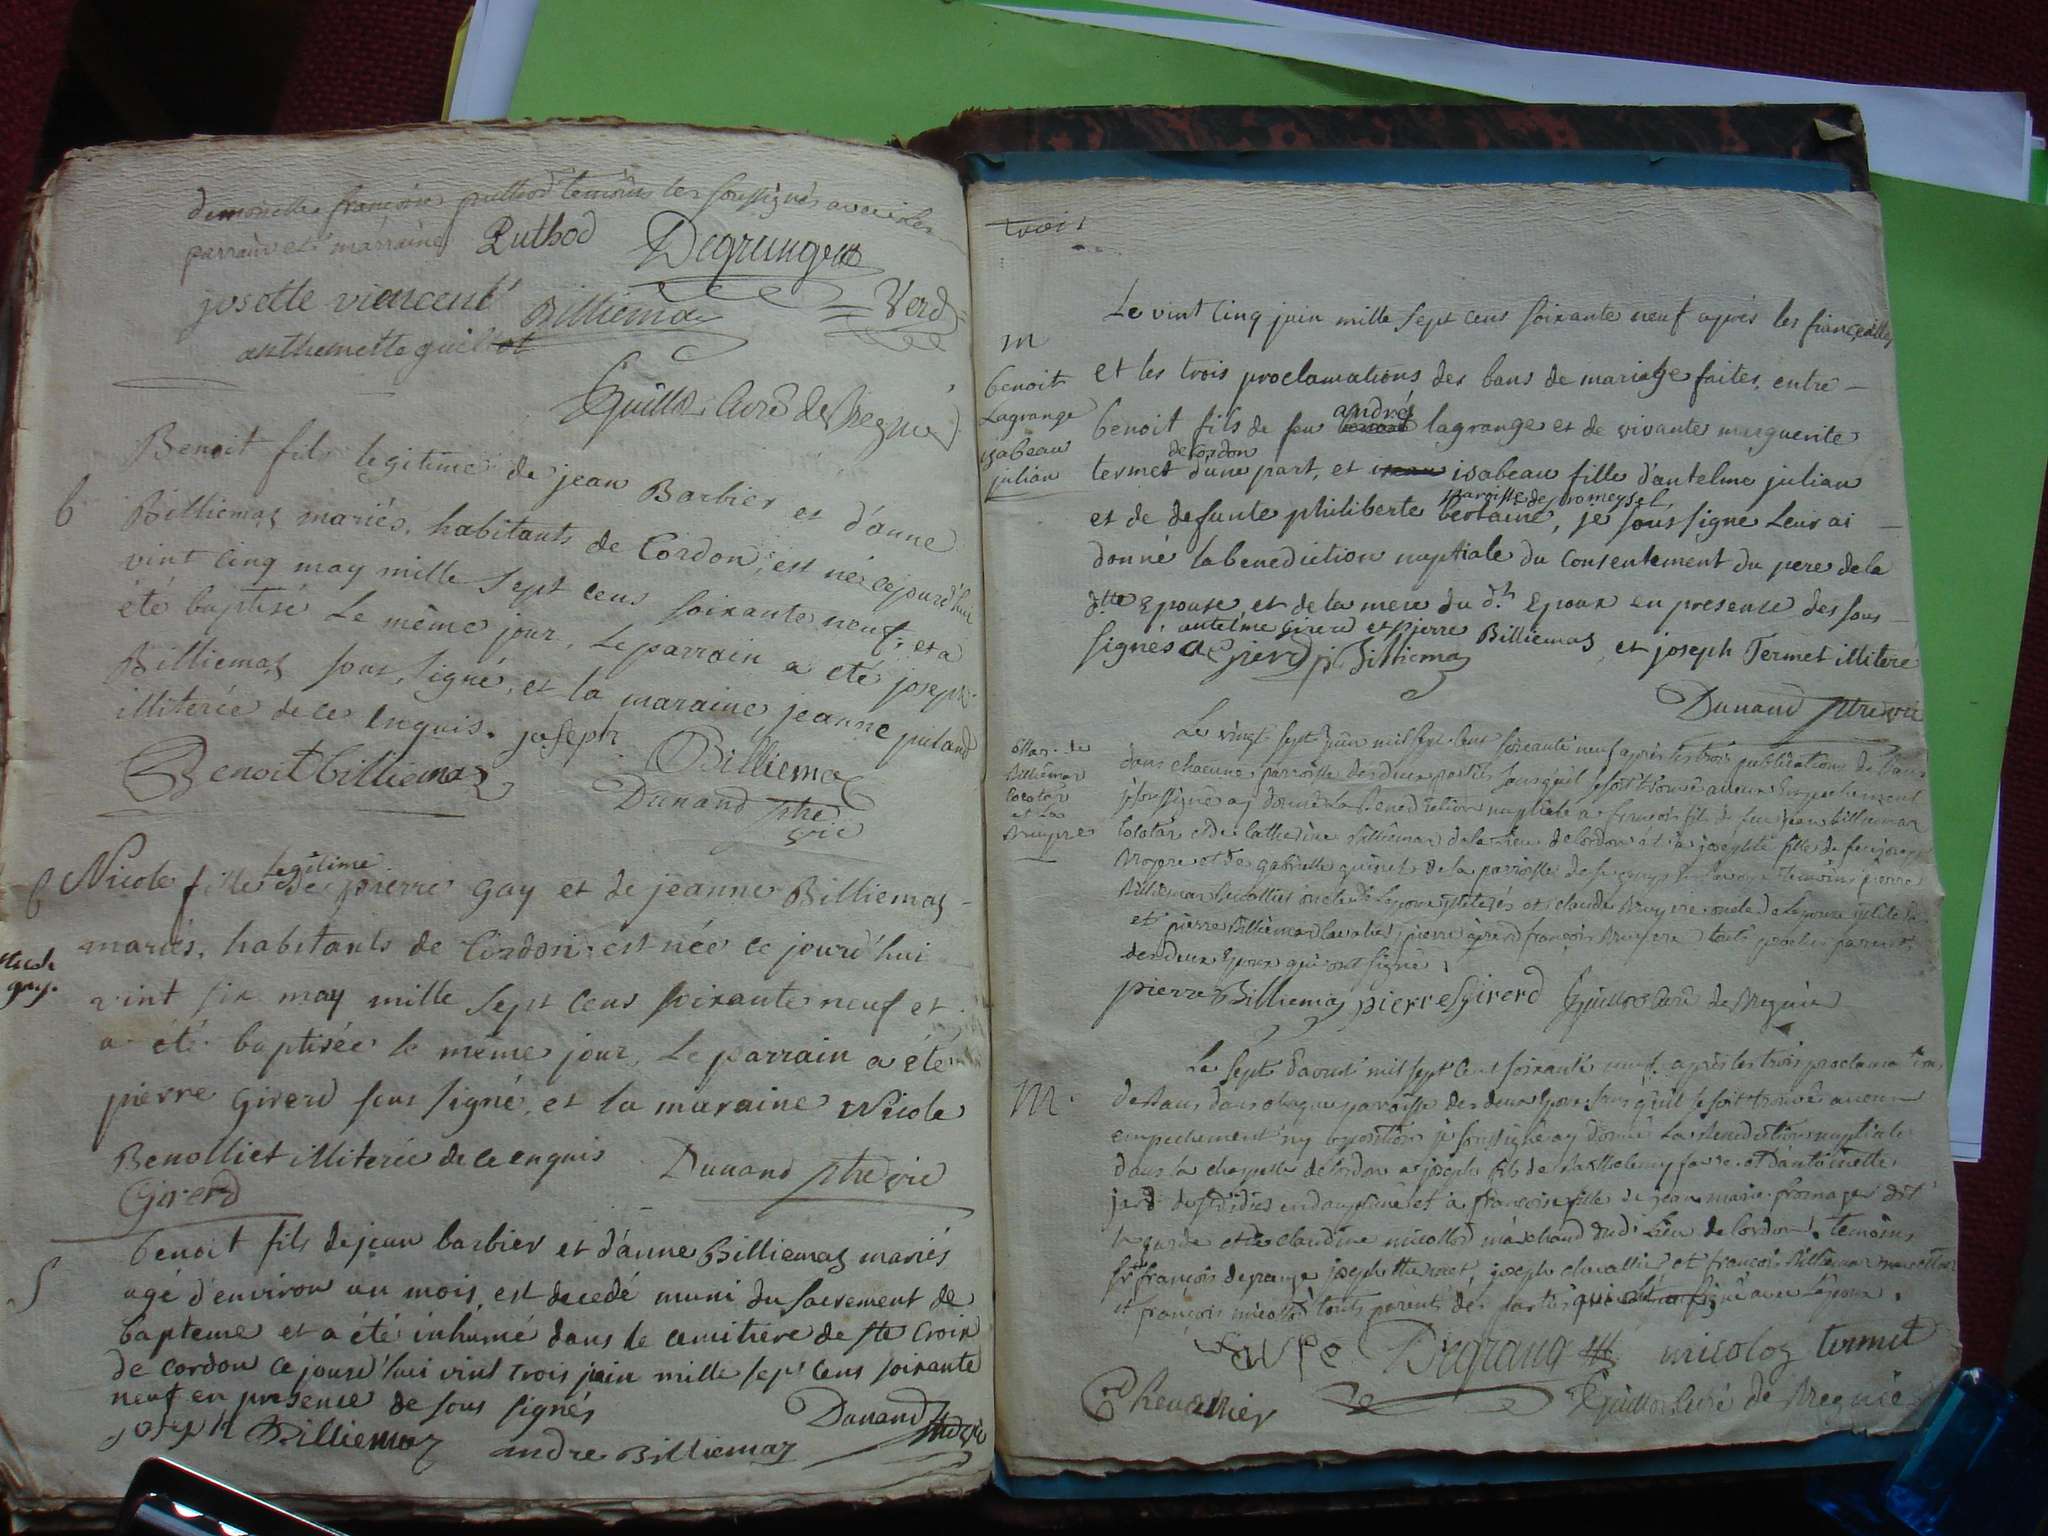 demoiselle françoise puthod temoins les soussignés avec les
parrain et marraine Puthod Degrange
josette viencent Billiemaz Verd
anthemette guil
Guillot Curé de Bregnié
Benoit fils legitime de jean Barbier et d'anne
b
Billiemaz mariés, habitants de Cordon, est né ce jourd'hui
vint cinq may mille sept cens soixante neuf, et a
été baptisé le même jour, Le parrain a été joseph
Billiemaz sous signé, et la maraine jeanne putand
illiterée de ce enquis. joseph Billiemaz
Benoit billiemaz Dunand ptre vic
b
Nicole fille legitime de pierre Gay et de jeanne Billiemaz
mariés, habitants de Cordon, est née ce jourd'hui
gay.
vint six may mille sept cens soixante neuf et
a été baptisée le même jour, Le parrain a été
pierre Girerd sous signé, et la maraine Nicole
Benolliet illiterée de ce enquis Dunand ptre vic
Girerd
S
benoit fils de jean barbier et d'anne Billiemaz mariés
agé d'environ un mois, est decedé muni du sacrement de
bapteme et a été inhumé dans le cemitière de ste Croix
de cordon ce jourd'hui vint trois juin mille sept cens soixante
neuf en presence de sous signés
joseph Billiemaz andre Billiemaz Dunand ptre vic
trois
Le vint cinq juin mille sept cens soixante neuf après les fiançailles
m
benoit
Lagrange
isabeau
julian
et les trois proclamations des bans de mariage faites, entre
benoit fils de feu andré lagrange et de vivante marguerite
termet de cordon d'une part, et isabeau fille d'antelme julian
et de defunte philiberte bertaine, paroisse de promeysel, je sous signé leur ai
donné la benediction nuptiale du consentement du pere de la
dtte Epouse, et de la mere du dt Epoux en presence des sous
signés antelme girerd et pierre Billiemaz, et joseph Termet illiteré
a Girerd p. Billiemaz
Dunand ptre vic
Mar. de
Billiemaz
Colotar
et La
Bruyere
Le vingt sept juin mil sept cent soixante neuf après les trois publications de bans
dans chacune parroisse des deux parties sans qu'il se soit trouvé aucun Empechement
je soussigné ay donné La Benediction nuptiale a francois fils de feu jean billiemaz
Colotar et de Catherine Billiemaz de la de Cordon et a josephte fille de feu joseph
Bruyere et de Gabrielle quinet de la parroisse de temoins pierre
Billiemaz oncle de Lepoux illiterés et claude Bruyere oncle de Lepouse
et pierre Billiemaz pierre girerd francois Bruyere touts proches parents
des deux Epoux qui ont signé.
pierre Billiemaz pierre Girerd Guillot Curé de Bregnié
M.
Le sept d'aoust mil sept Cent soixante neuf, après les trois proclamations
de bans dans chaque paroisse des deux Epoux sans qu'il se soit trouvé aucun
empechement ny opposition je soussigné ay donné La Benediction nuptiale
dans la chapelle de Cordon a joseph fils de Barthelemy favre et d'antoinette
en dauphiné et a françoise fille de jean marie fromager dit
la garde et de claudine nicollod marchand dudt Lieu de Cordon, temoins
sr françois degrange joseph thermet, joseph chevallier et francois Billiemaz
et françois nicollod touts parents des parties qui ont signé avec Lepoux.
favre Degrange nicoloz termet
Chevallier Guillot Curé de Bregnié